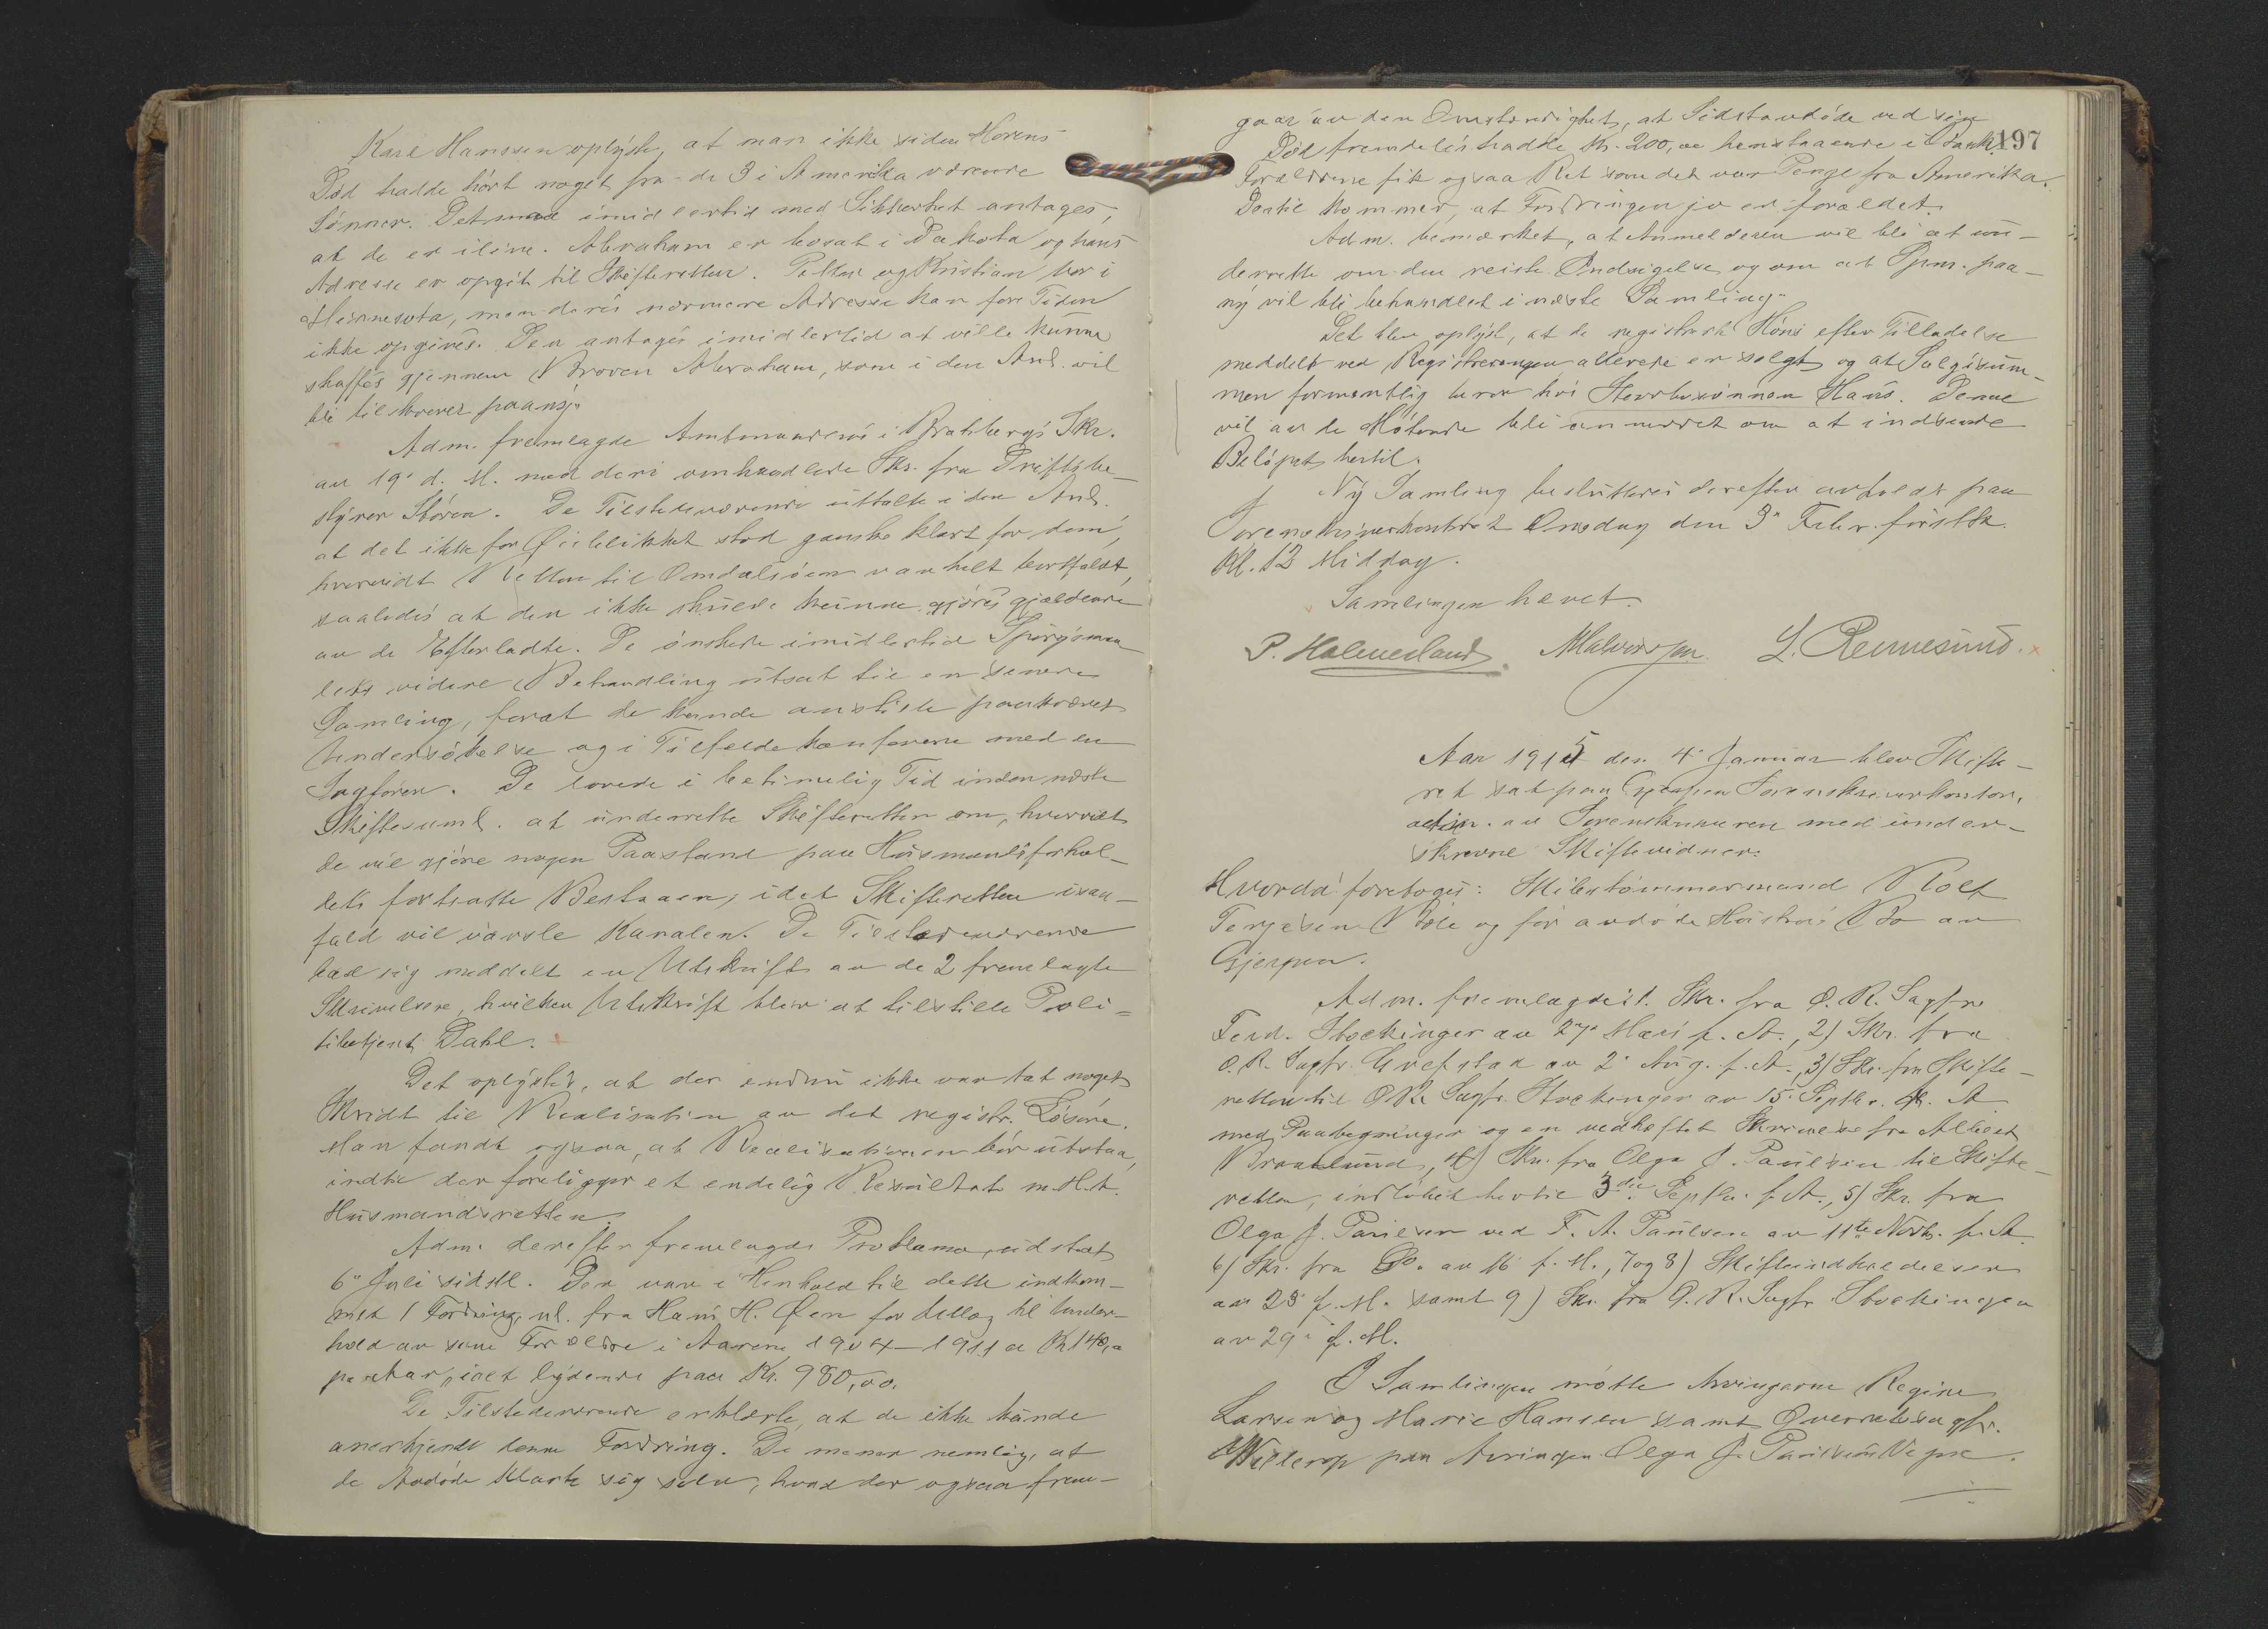 Karl Hanssen oplyste, at man ikke siden Morens
Død hadde hørt noget fra de 3 i Amerika værende
Sønner. Det maa imidlertid med Sikkerhet antages,
at de er ilive. Abraham er bosat i Dakota og hans
Adresse er opgit til Skifteretten. Petter og Kristian bor i
Minnesota, men deres nærmere Adresse kan for Tiden
ikke opgives. Den antages imidlertid at ville kunne
skaffes gjennem Broren Abraham, som i den Anl. vil
bli tilskrevet paany.
Adm. fremlagde Amtmandens i Bratsberg's Skr.
av 19' d. M. med deri omhandlede Skr. fra Driftsbe-
styrer Støren. De Tilstedeværende uttalte i den Anl.
at det ikke for Øieblikket stod ganske klart for dem,
hvorvidt Retten til Omdalsøen var helt bortfaldt,
saaledes at den ikke skulde kunne gjøres gjældende
av de Efterladte. De ønskede imidlertid Spørgsmaa-
lets videre Behandling utsat til en senere
Samling, forat de kunde anstille paakrævet
Undersøkelse og i Tilfælde konferere med en
Sagfører. De lovede i betimelig Tid inden næste
Skiftesaml. at underrette Skifteretten om, hvorvidt
de vil gjøre nogen Paastand paa Husmandsforhol-
dets fortsatte Bestaaen, idet Skifteretten isaa-
fald vil varsle Kanalen. De Tilstedeværende
bad sig meddelt en Utskrift av de 2 fremlagte
Skrivelser, hvilken Utskrift blev at tilstille Poli-
tibetjent Dahl.
Det oplystes, at der endnu ikke var tat noget
Skridt til Realisation av det registr. Løsøre.
Man fandt ogsaa, at Realisationen bør utstaa,
indtil der foreligger et endelig Resultat m. H. t.
Husmandsretten.
Adm. derefter fremlagde Proklama, utstedt
6" Juli sidstl. Der var i Henhold til dette indkom-
met 1 Fordring, nl. fra Hans H. Øen for Utlæg til Under-
hold av sine Forældre i Aarene 1904-1911 a Kr 140,-
pr. Aar, ialt lydende paa Kr. 980,00.
De Tilstedeværende erklærte, at de ikke kunde
anerkjende denne Fordring. De mener nemlig, at
de Avdøde klarte sig selv, hvad der ogsaa frem-
197
gaar av den Omstændighet, at Sidstavdøde ved sin
Død fremdeles hadde Kr. 200,00 henstaaende i Bank.
Forældrene fik ogsaa Ret som det var Penge fra Amerika.
Dertil kommer, at Fordringen jo er forældet.
Adm. bemerket, at Anmelderen vil bli at un-
derrette om den reiste Indsigelse og om at Spm. paa-
ny vil bli behandlet i næste Samling.
Det blev oplyst, at de registrerte Høns efter Tilladelse
meddelt ved Registreringen allerede er solgt og at Salgssum-
men formentlig beror hos Stervbosønnen Hans. Denne
vil av de Møtende bli anmodet om at indsende
Beløpet hertil.
Ny Samling besluttedes derefter avholdt paa
Sorenskriverkontoret Onsdag den 3" Febr. førstk.
Kl. 12 Middag.
Samlingen hævet.
P. Holmesland. L. Rennesund.
Aar 1915 den 4' Januar blev Skifte-
ret sat paa Gjerpen Sorenskriverkontor,
adm. av Sorenskriveren med under-
skrevne Skiftevidner:
Hvorda foretoges: Skibstømmermand Rolf
Terjesen Bøle og før avdøde Hustrus Bo av
Gjerpen.
Adm. fremlagde 1. Skr. fra O. R. Sagfører
Ferd. Stockinger av 27' Mars f. A., 2) Skr. fra
O. R. Sagfr. Grefstad av 2' Aug. f. A., 3) Skr. fra Skifte-
retten til O. R. Sagfr. Stockinger av 15' Septbr. f. A.
med Paategninger og en vedheftet Skrivelse fra Albert
Braatlund, 4) Skr. fra Olga J. Paulsen til Skifte-
retten, indløbet hertil 3die Septbr. f. A., 5) Skr. fra
Olga J. Paulsen ved F. A. Paulsen av 11te Novbr. f. A.
6) Skr. fra Do. av 16 f. M., 7 og 8) Skifteindkaldelser
av 23' f. M. samt 9) Skr. fra O. R. Sagfr. Stockinger
av 29' f. M.
I Samlingen møtte Arvingerne Regine
Larsen og Marie Hansen samt Overretssagfr.
Willerup paa Arvingen Olga J. Paulsens Vegne.